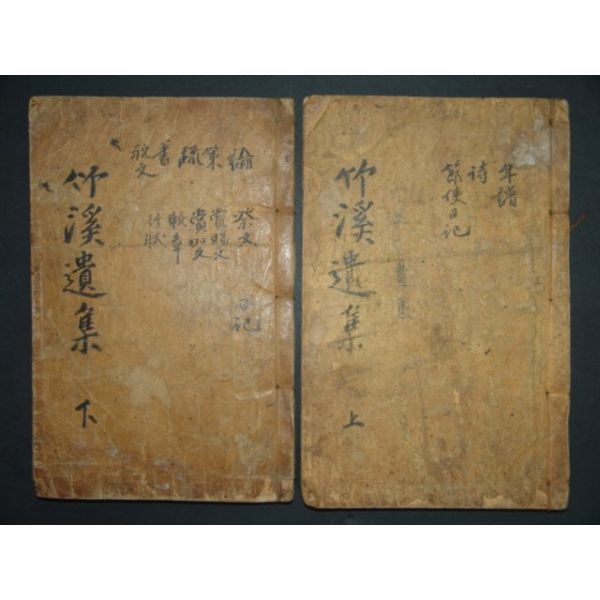 年譜
詩
節使日記
竹溪遺集
上
論
策
疏
書
祝文
祭文
賞賜文
輓章
行狀
日記
竹溪遺集
下